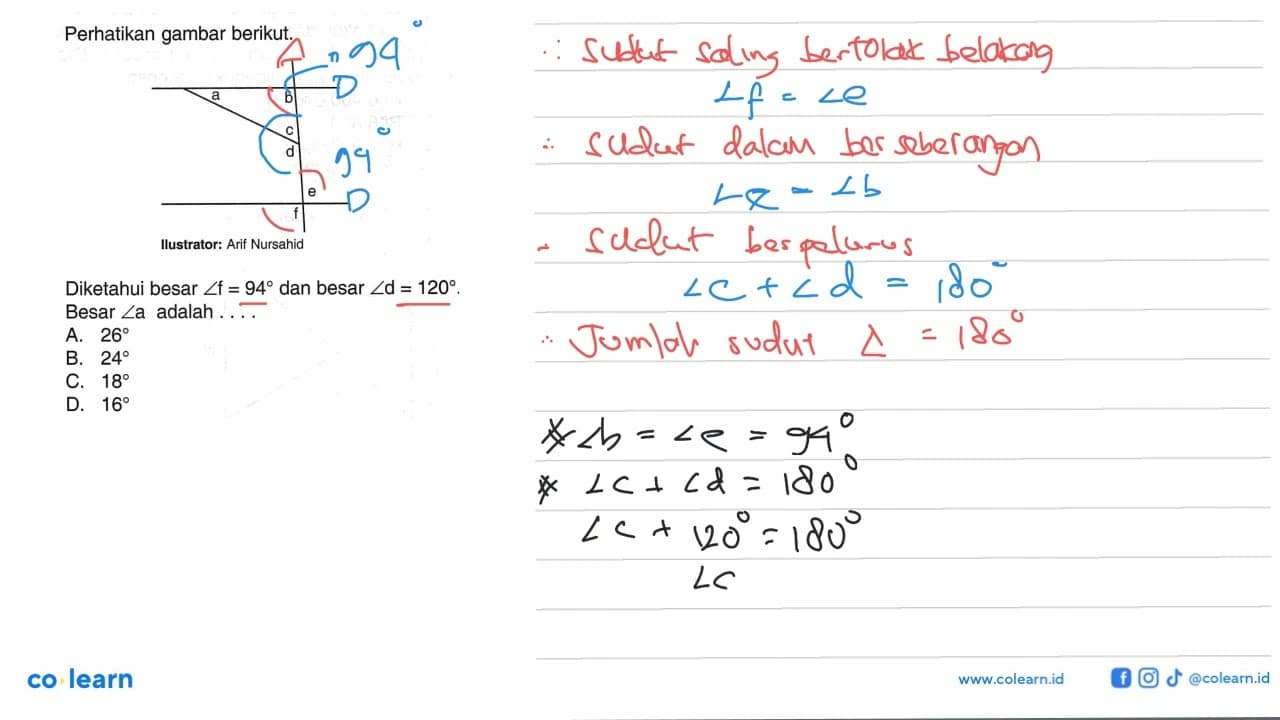 Perhatikan gambar berikut.
A
94°
D
a
b
c
d
94°
e
D
f
Ilustrator: Arif Nursahid
Diketahui besar ∠f = 94° dan besar ∠d = 120°.
Besar ∠a adalah . . . .
A. 26°
B. 24°
C. 18°
D. 16°
∴ Sudut saling bertolak belakang
∠f = ∠e
∴ Sudut dalam berseberangan
∠e = ∠b
- Sudut berpelurus
∠c + ∠d = 180°
∴ Jumlah sudut Δ = 180°
* ∠b = ∠e = 94°
* ∠c + ∠d = 180°
∠c + 120° = 180°
∠c
co learn
www.colearn.id
@colearn.id